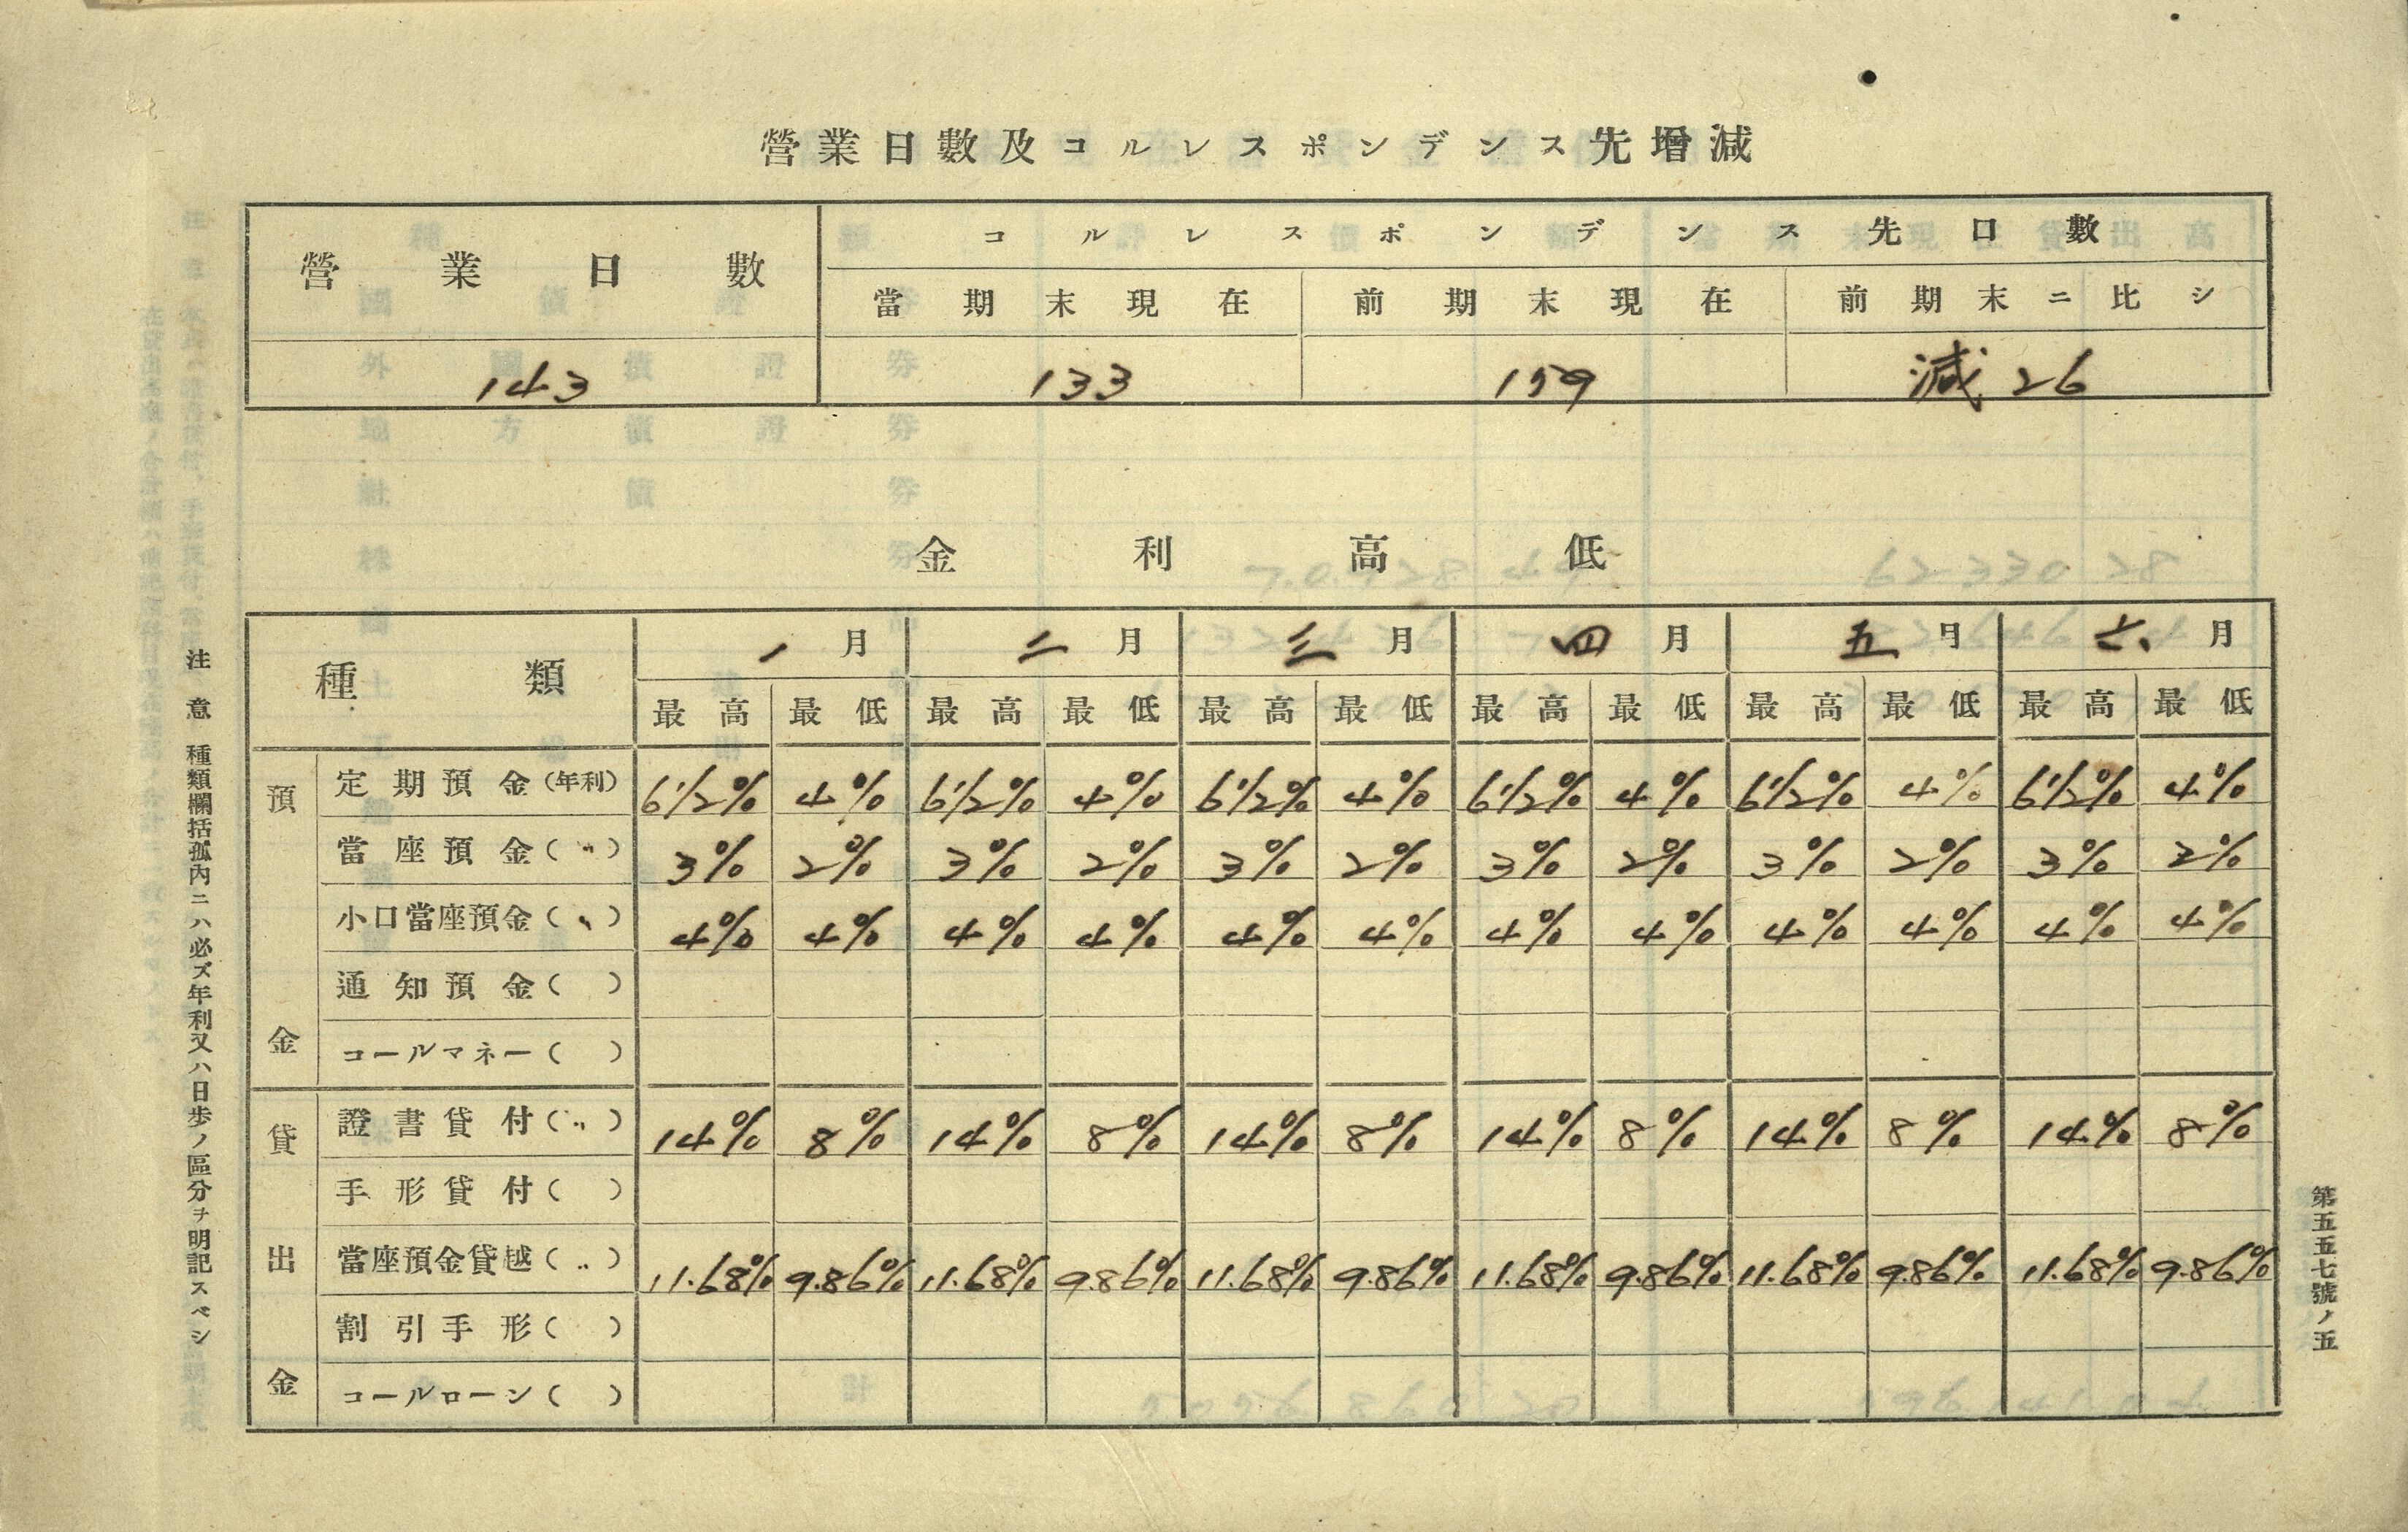 營業日數及コルレスポンデンス先增減
營業日數 コルレスポンデンス先口數
當期末現在 前期末現在 前期末ニ比シ
143 133 159 減 26
金利高低
種類 一月 二月 三月 四月 五月 六月
最高 最低 最高 最低 最高 最低 最高 最低 最高 最低 最高 最低
預金
定期預金(年利) 6 1/2% 4% 6 1/2% 4% 6 1/2% 4% 6 1/2% 4% 6 1/2% 4% 6 1/2% 4%
當座預金(〃) 3% 2% 3% 2% 3% 2% 3% 2% 3% 2% 3% 2%
小口當座預金(〃) 4% 4% 4% 4% 4% 4% 4% 4% 4% 4% 4% 4%
通知預金( )
コールマネー( )
貸出金
證書貸付(〃) 14% 8% 14% 8% 14% 8% 14% 8% 14% 8% 14% 8%
手形貸付( )
當座預金貸越(〃) 11.68% 9.86% 11.68% 9.86% 11.68% 9.86% 11.68% 9.86% 11.68% 9.86% 11.68% 9.86%
割引手形( )
コールローン( )
注意 種類欄括孤內ニハ必ズ年利又ハ日歩ノ區分ヲ明記スベシ
第五五五七號ノ五